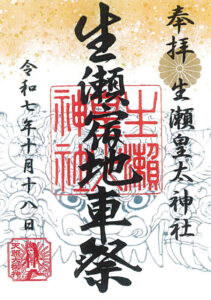 奉拝
生瀬皇太神社
生瀬宿地車祭
令和七年十月十八日
生瀬
神社